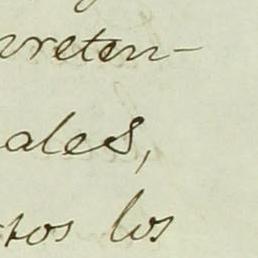 preten-
ales,
stos los